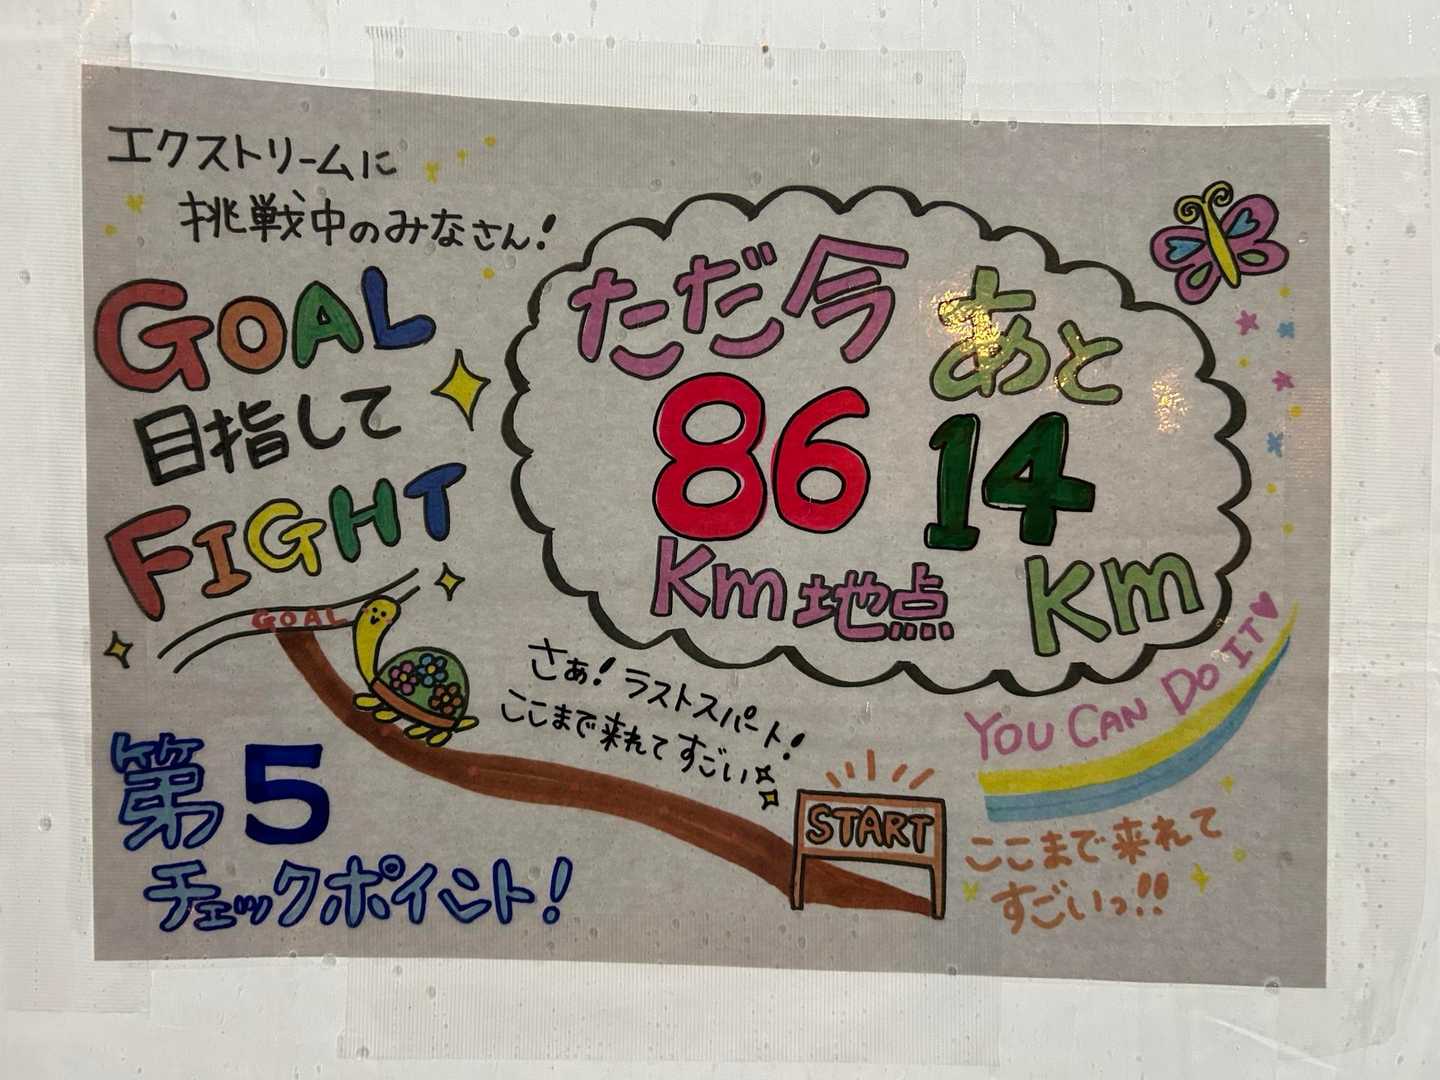 エクストリームに
挑戦中のみなさん!
GOAL
目指して
FIGHT
ただ今
86
Km地点
あと
14
Km
GOAL
さぁ!ラストスパート!
ここまで来れてすごい
YOU CAN DO IT♥
START
ここまで来れて
すごいっ!!
第5
チェックポイント!